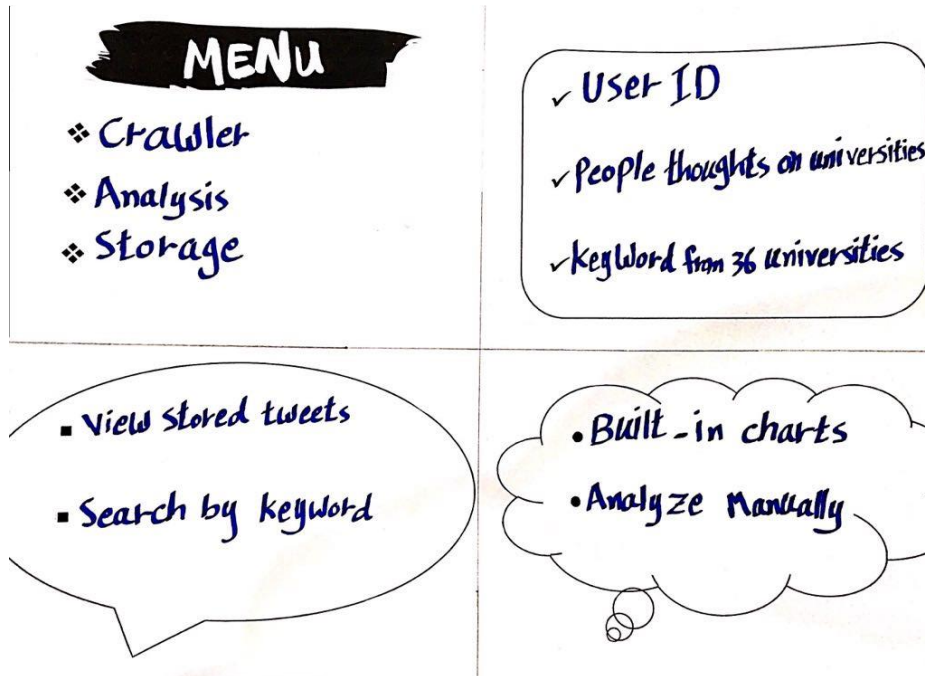 MENU
Crawler
Analysis
Storage
User ID
People thoughts on universities
Keyword from 36 universities
View stored tweets
Search by keyword
Built-in charts
Analyze Manually